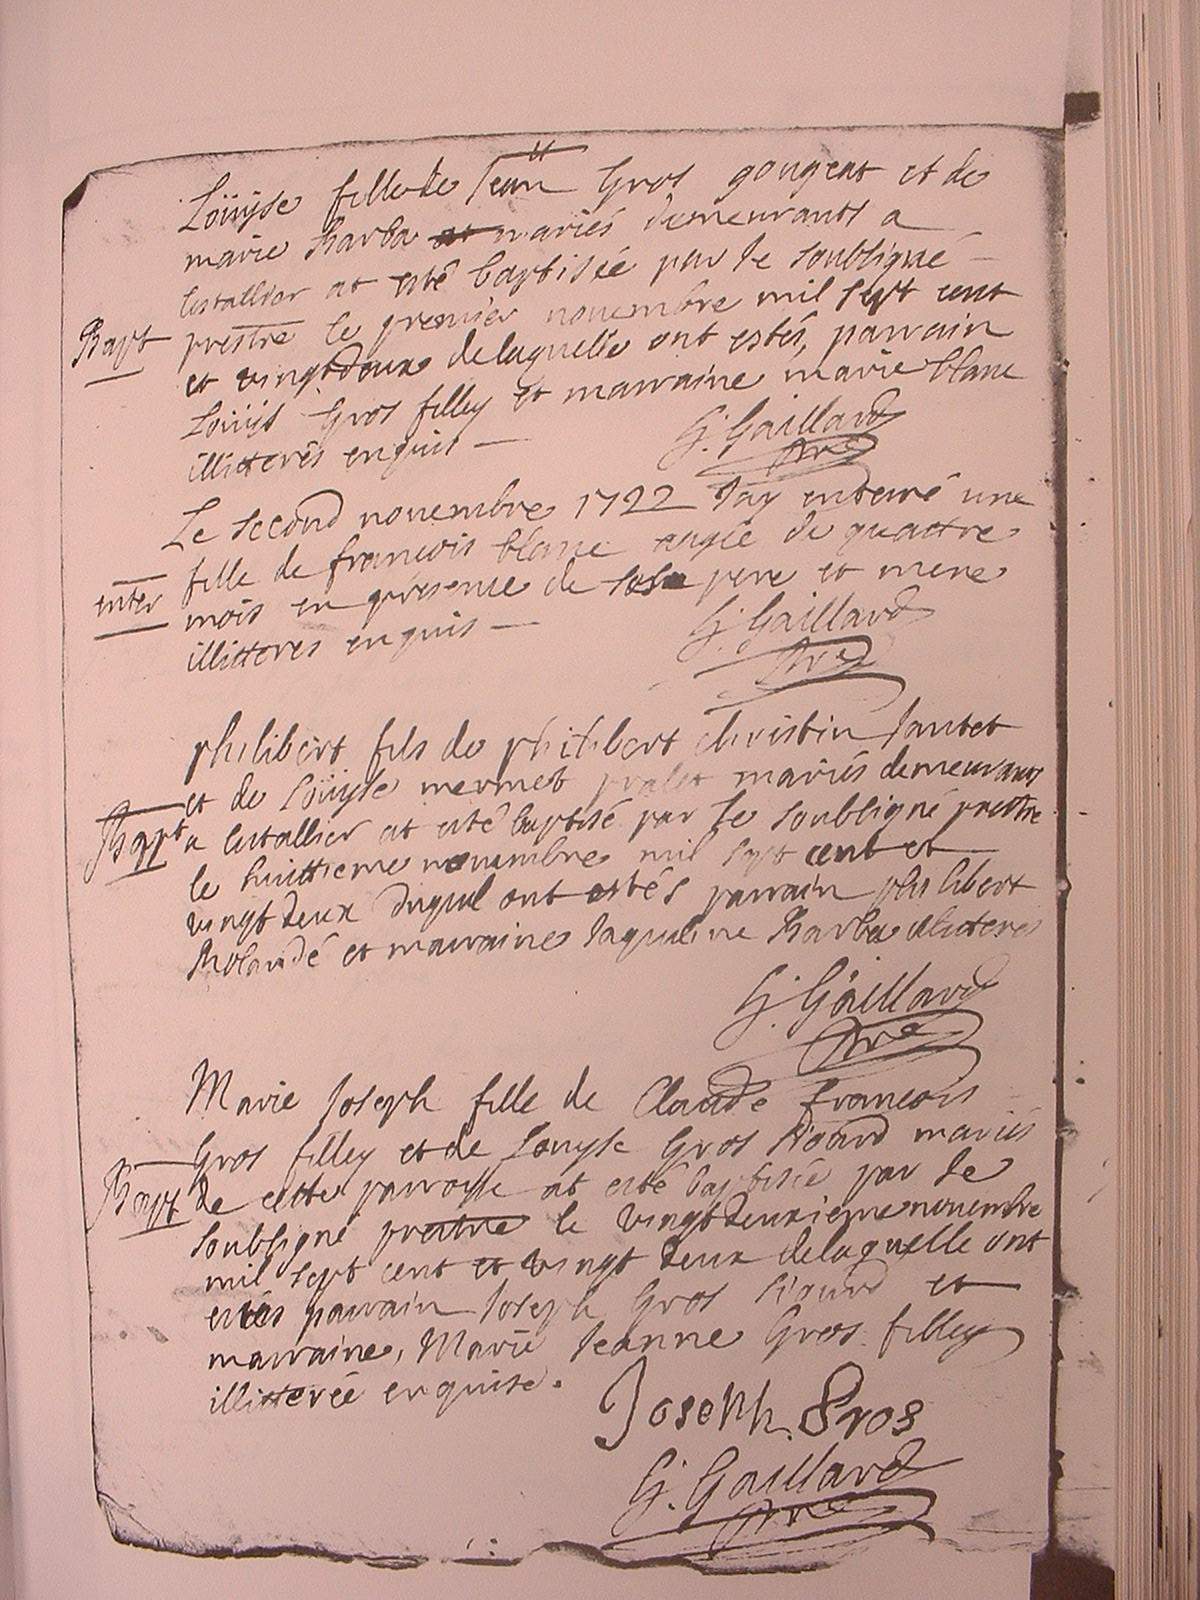 Loüyse fille de Jean Gros gougeat et de
marie Barba et mariés demeurants a
lestallier at esté baptisée par le soubsigné
Bapt prestre le premier novembre mil sept cent
et vingt deux de laquelle ont estés, parrain
Loüys Gros filley et marraine marie blanc
illitterés enquis
G. Gaillard
Pre
Le second novembre 1722 Jay enterré une
fille de francois blanc eagée de quattre
enter mois en presence de ses pere et mere
illitteres enquis
G. Gaillard
Pre
philibert fils de philibert christin Jantet
et de Loüyse mermet pralet mariés demeurants
Bapt a lestallier at esté baptisé par le soubsigné prestre
le huittieme novembre mil sept cent et
vingt deux duquel ont estés parrain philibert
Rolandé et marraine Jaqueline Barba illiteres
G. Gaillard
Pre
Marie Joseph fille de Claude francois
Gros filley et de Louyse Gros Sicard mariés
Bapt de cette parroisse at esté baptisée par le
soubsigné prestre le vingt deuxieme novembre
mil sept cent et vingt deux de laquelle ont
estés parrain Joseph Gros Sicard et
marraine, Marie Jeanne Gros filley
illitterée enquise.
Joseph Gros
G. Gaillard
Pre